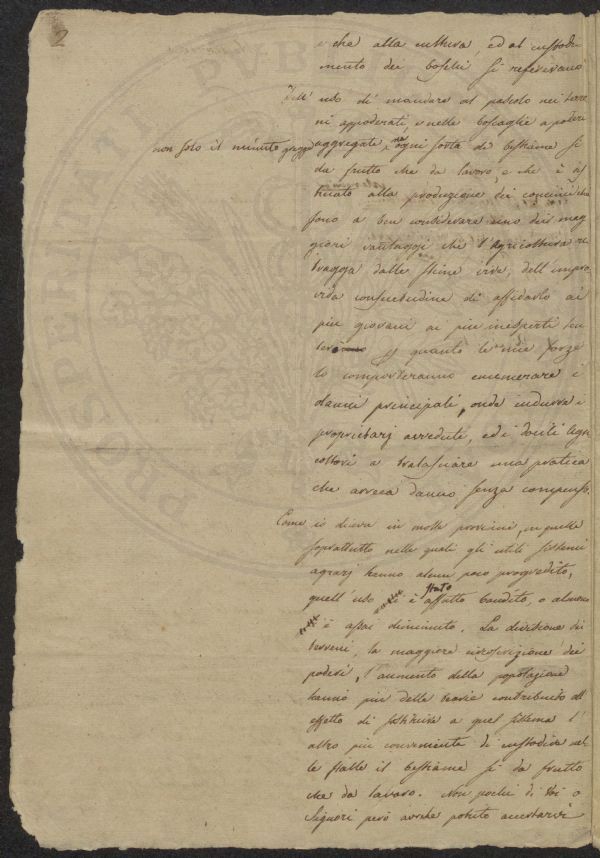 2
e che alla cultura, ed al custodi
mento dei boschi si referivano
Dell' uso di mandare al pascolo nei terre
ni appoderati, e nelle boscaglie a poderi
non solo il minuto gregge
aggregate, ma ogni sorta di bestiame si
da frutto che da lavoro, e che è
alla produzione dei concimi che
sono a ben considerare uno dei mag
giori vantaggj che l'Agricoltura ri
tragga dalle stime vive, dell'impro
vida consuetudine di affidarlo ai
più giovani ai più inesperti
quanto le mie forze
lo comporteranno enumerare i
danni principali, onde indurre i
proprietarj avveduti, ed i docili agri
coltori a tralasciare una pratica
che arreca danno senza compenso.
Come io diceva in molte provincie, in quelle
soprattutto nelle quali gli utili sistemi
agrarj hanno alcun poco progredito,
quell'uso è stato affatto bandito, o almeno
è assai diminuito. La divisione dei
terreni, la maggiore circoscrizione dei
poderi, l'aumento della popolazione
hanno più delle teorie contribuito all'
effetto di sostituire a quel sistema l'
altro più conveniente di custodire nel
le stalle il bestiame si da frutto
che da lavoro. Non pochi di Voi o
Signori però avrete potuto accertarvi